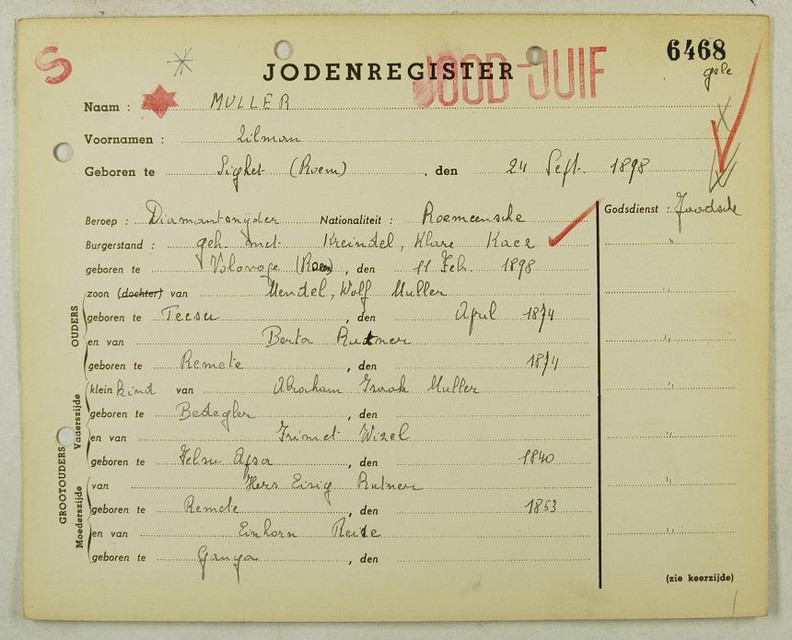 S
JODENREGISTER
JOOD-JUIF
6468
gele
Naam : MULLER
Voornamen : Zilman
Geboren te Sighet (Roem) , den 24 Sept. 1898
Beroep : Diamantsnyder Nationaliteit : Roemeensche Godsdienst : Joodsche
Burgerstand : geh. met Kreindel, Klare "
geboren te (Roem) , den 11 Feb. 1898
zoon (dochter) van Mendel, Wolf Muller "
OUDERS
geboren te Teesu , den April 1874
en van Berta Rutner "
geboren te Remete , den 1874
klein kind van Abraham Isaak Muller "
GROOTOUDERS
Vaderszijde
geboren te , den
en van Frimet Wizel "
geboren te , den 1840
Moederszijde
van Hers Eisig Rutner "
geboren te Remete , den 1853
en van Einhorn "
geboren te Ganya , den
(zie keerzijde)